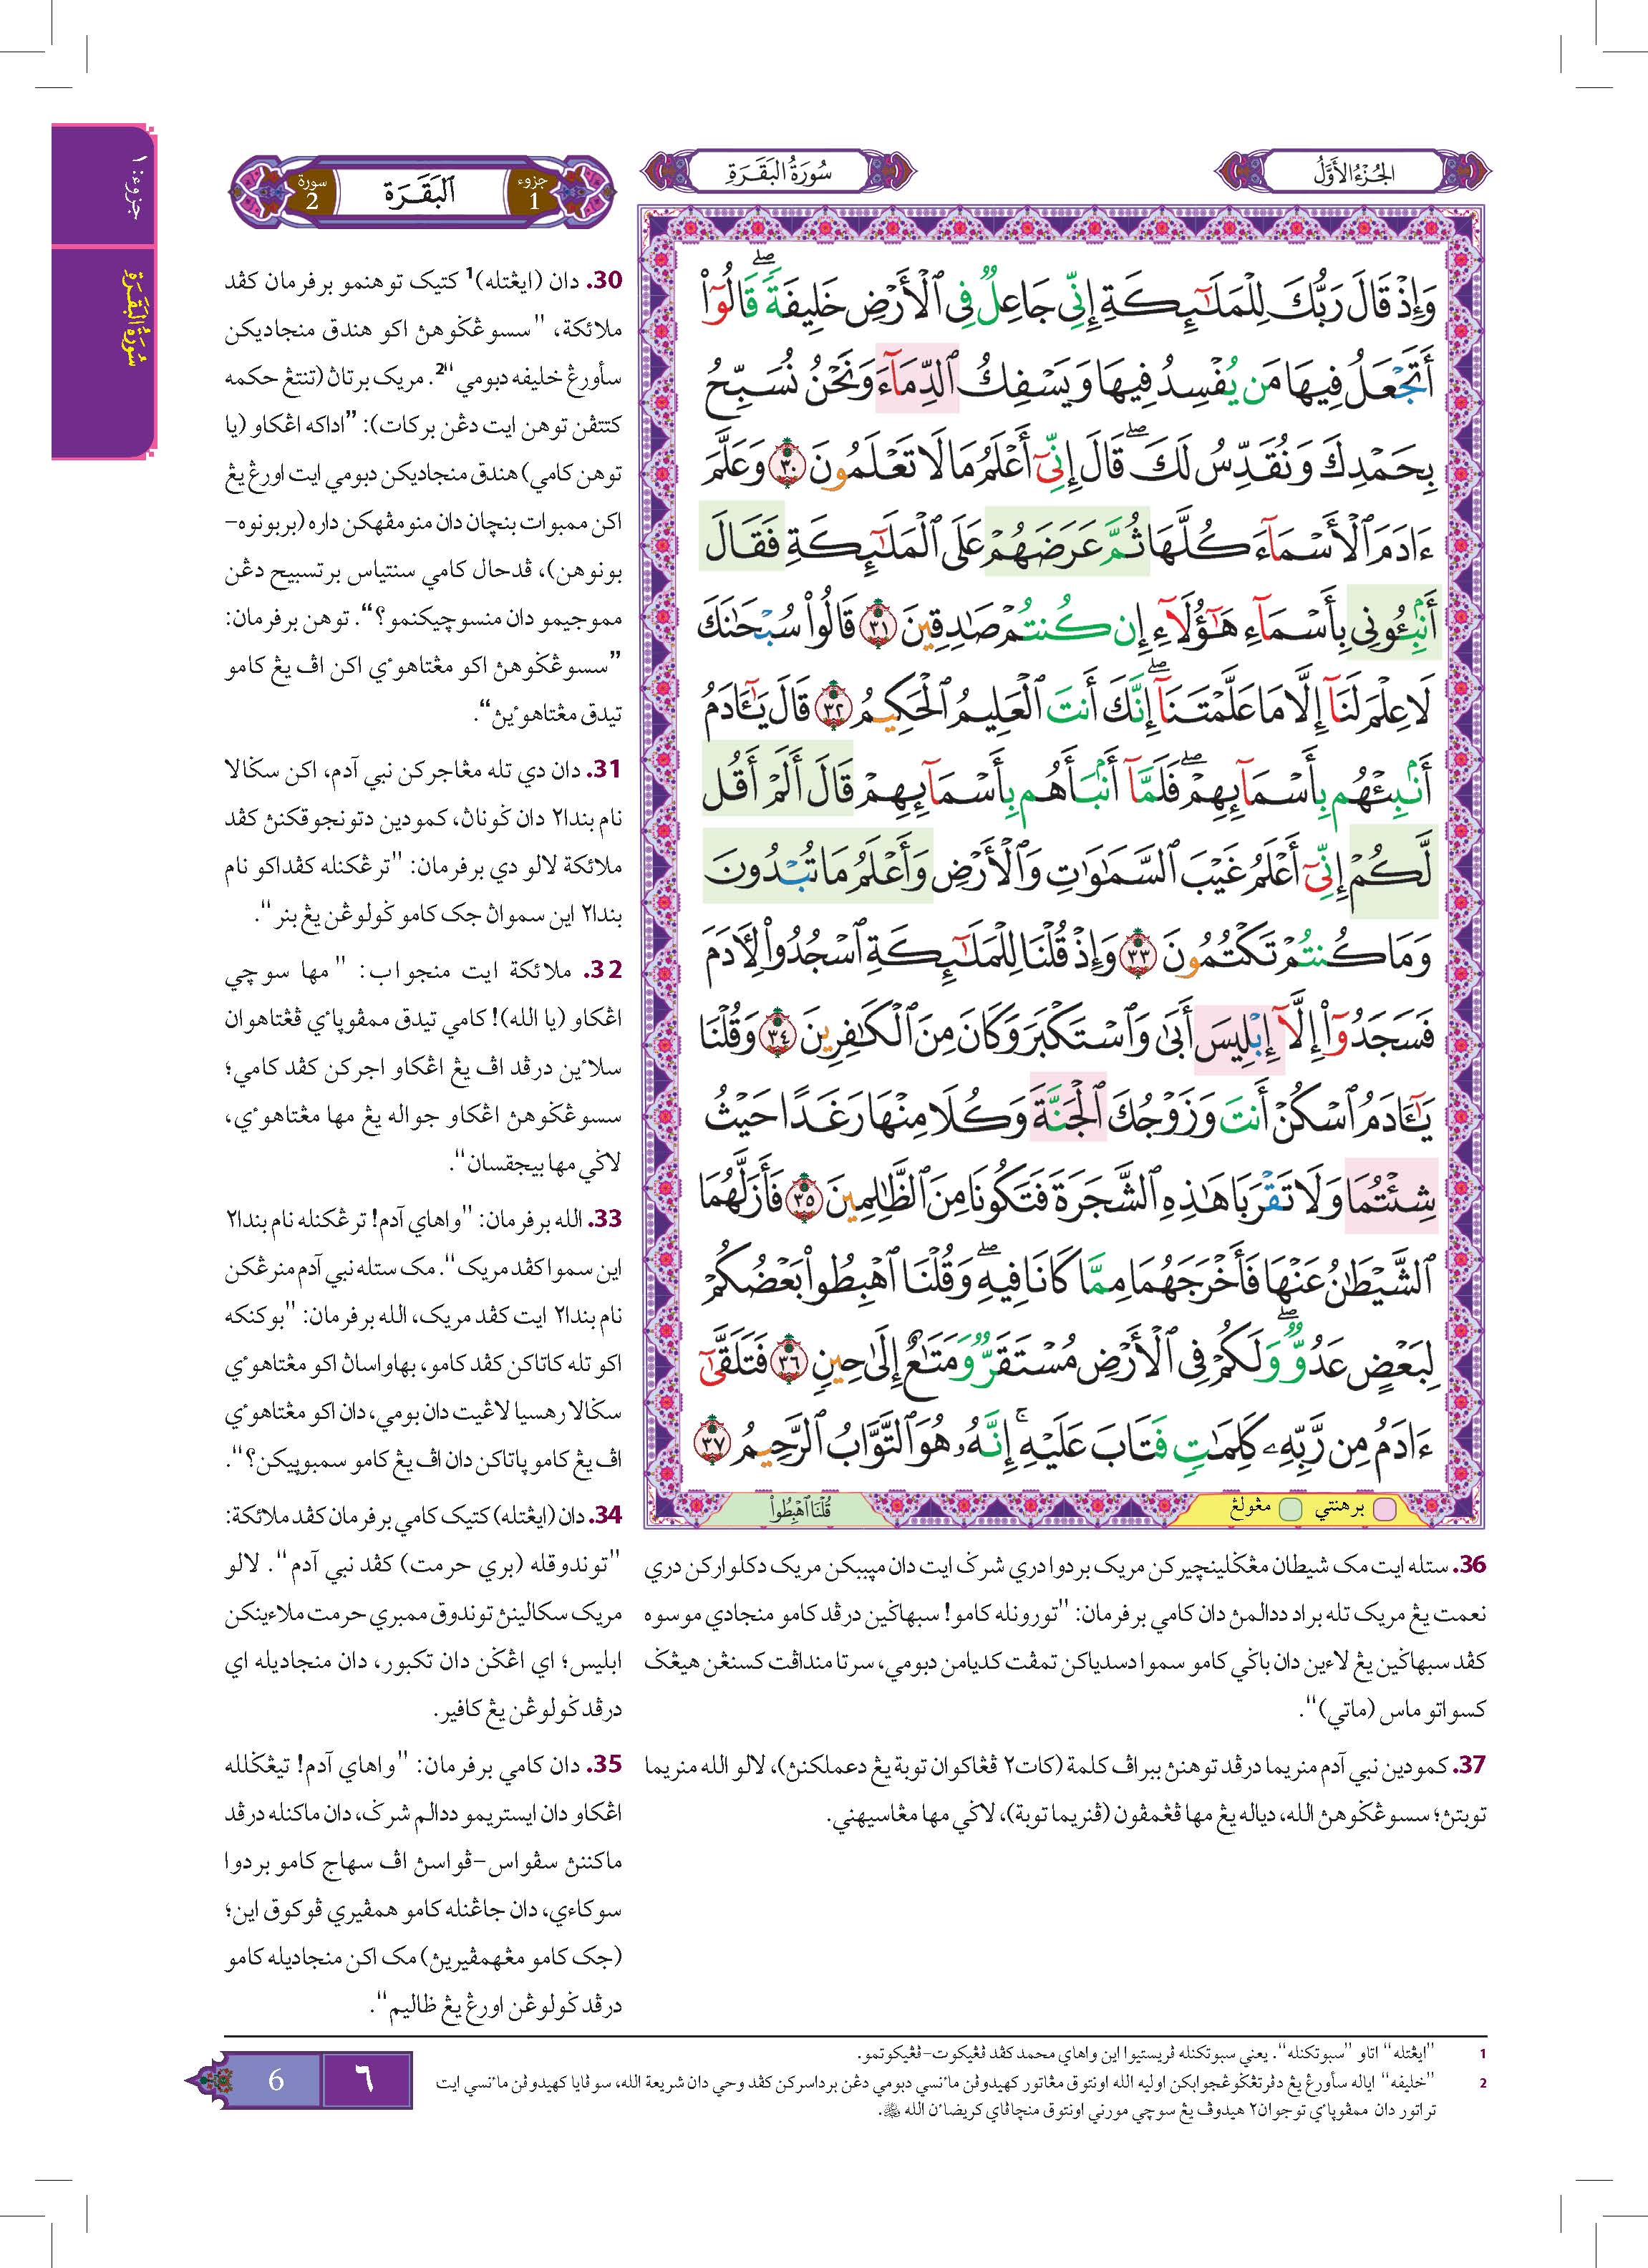 الجُزْءُ الأَوَّلُ
سُورَةُ البَقَرَةِ
جزوء 1
اَلبَقَـرَة
سورة 2
جزوء: ١
سُورَةُ البَقَرَةِ
وَإِذْ قَالَ رَبُّكَ لِلْمَلَـٰٓئِكَةِ إِنِّي جَاعِلٌ فِي ٱلْأَرْضِ خَلِيفَةً ۖ قَالُوٓا۟
أَتَجْعَلُ فِيهَا مَن يُفْسِدُ فِيهَا وَيَسْفِكُ ٱلدِّمَآءَ وَنَحْنُ نُسَبِّحُ
بِحَمْدِكَ وَنُقَدِّسُ لَكَ ۖ قَالَ إِنِّيٓ أَعْلَمُ مَا لَا تَعْلَمُونَ ٣٠ وَعَلَّمَ
ءَادَمَ ٱلْأَسْمَآءَ كُلَّهَا ثُمَّ عَرَضَهُمْ عَلَى ٱلْمَلَـٰٓئِكَةِ فَقَالَ
أَنۢبِـُٔونِي بِأَسْمَآءِ هَـٰٓؤُلَآءِ إِن كُنتُمْ صَـٰدِقِينَ ٣١ قَالُوا۟ سُبْحَـٰنَكَ
لَا عِلْمَ لَنَآ إِلَّا مَا عَلَّمْتَنَآ ۖ إِنَّكَ أَنتَ ٱلْعَلِيمُ ٱلْحَكِيمُ ٣٢ قَالَ يَـٰٓـَٔادَمُ
أَنۢبِئْهُم بِأَسْمَآئِهِمْ ۖ فَلَمَّآ أَنۢبَأَهُم بِأَسْمَآئِهِمْ قَالَ أَلَمْ أَقُل
لَّكُمْ إِنِّيٓ أَعْلَمُ غَيْبَ ٱلسَّمَـٰوَٰتِ وَٱلْأَرْضِ وَأَعْلَمُ مَا تُبْدُونَ
وَمَا كُنتُمْ تَكْتُمُونَ ٣٣ وَإِذْ قُلْنَا لِلْمَلَـٰٓئِكَةِ ٱسْجُدُوا۟ لِـَٔادَمَ
فَسَجَدُوٓا۟ إِلَّآ إِبْلِيسَ أَبَىٰ وَٱسْتَكْبَرَ وَكَانَ مِنَ ٱلْكَـٰفِرِينَ ٣٤ وَقُلْنَا
يَـٰٓـَٔادَمُ ٱسْكُنْ أَنتَ وَزَوْجُكَ ٱلْجَنَّةَ وَكُلَا مِنْهَا رَغَدًا حَيْثُ
شِئْتُمَا وَلَا تَقْرَبَا هَـٰذِهِ ٱلشَّجَرَةَ فَتَكُونَا مِنَ ٱلظَّـٰلِمِينَ ٣٥ فَأَزَلَّهُمَا
ٱلشَّيْطَـٰنُ عَنْهَا فَأَخْرَجَهُمَا مِمَّا كَانَا فِيهِ ۖ وَقُلْنَا ٱهْبِطُوا۟ بَعْضُكُمْ
لِبَعْضٍ عَدُوٌّ ۖ وَلَكُمْ فِي ٱلْأَرْضِ مُسْتَقَرٌّ وَمَتَـٰعٌ إِلَىٰ حِينٍ ٣٦ فَتَلَقَّىٰٓ
ءَادَمُ مِن رَّبِّهِۦ كَلِمَـٰتٍ فَتَابَ عَلَيْهِ ۚ إِنَّهُۥ هُوَ ٱلتَّوَّابُ ٱلرَّحِيمُ ٣٧
برهنتي مڠولڠ
قُلْنَا ٱهْبِطُوا۟
30. دان (ايڠتله)1 كتيک توهنمو برفرمان كڤد
ملائكة، "سسوڠݢوهن اكو هندق منجاديكن
سأورڠ خليفه دبومي"2. مريک برتاڽ (تنتڠ حكمه
كتتڤن توهن ايت دڠن بركات): "اداكه اڠكاو (يا
توهن كامي) هندق منجاديكن دبومي ايت اورڠ يڠ
اكن ممبوات بنچان دان منومڤهكن داره (بربونوه-
بونوهن)، ڤدحال كامي سنتياس برتسبيح دڠن
مموجيمو دان منسوچيكنمو؟". توهن برفرمان:
"سسوڠݢوهن اكو مڠتاهوءي اكن اڤ يڠ كامو
تيدق مڠتاهوءيڽ".
31. دان دي تله مڠاجركن نبي آدم، اكن سݢالا
نام بندا٢ دان ݢوناڽ، كمودين دتونجوقكنڽ كڤد
ملائكة لالو دي برفرمان: "ترڠكنله كڤداكو نام
بندا٢ اين سمواڽ جک كامو ݢولوڠن يڠ بنر".
32. ملائكة ايت منجواب: "مها سوچي
اڠكاو (يا الله)! كامي تيدق ممڤوياءي ڤڠتاهوان
سلاءين درڤد اڤ يڠ اڠكاو اجركن كڤد كامي؛
سسوڠݢوهن اڠكاو جواله يڠ مها مڠتاهوءي،
لاݢي مها بيجقسان".
33. الله برفرمان: "واهاي آدم! ترڠكنله نام بندا٢
اين سموا كڤد مريک". مک ستله نبي آدم منرڠكن
نام بندا٢ ايت كڤد مريک، الله برفرمان: "بوكنكه
اكو تله كاتاكن كڤد كامو، بهاواساڽ اكو مڠتاهوءي
سݢالا رهسيا لاڠيت دان بومي، دان اكو مڠتاهوءي
اڤ يڠ كامو ڽاتاكن دان اڤ يڠ كامو سمبوڽيكن؟".
34. دان (ايڠتله) كتيک كامي برفرمان كڤد ملائكة:
"توندوقله (بري حرمت) كڤد نبي آدم". لالو
مريک سكالينڽ توندوق ممبري حرمت ملاءينكن
ابليس؛ اي اڠݢن دان تكبور، دان منجاديله اي
درڤد ݢولوڠن يڠ كافير.
35. دان كامي برفرمان: "واهاي آدم! تيڠݢلله
اڠكاو دان ايستريمو ددالم شرݢ، دان ماكنله درڤد
ماكننڽ سڤواس-ڤواسڽ اڤ سهاج كامو بردوا
سوكاءي، دان جاڠنله كامو همڤيري ڤوكوق اين؛
(جک كامو مڠهمڤيريڽ) مک اكن منجاديله كامو
درڤد ݢولوڠن اورڠ يڠ ظاليم".
36. ستله ايت مک شيطان مڠݢلينچيركن مريک بردوا دري شرݢ ايت دان مڽببكن مريک دكلواركن دري
نعمت يڠ مريک تله براد ددالمڽ دان كامي برفرمان: "تورونله كامو! سبهاݢين درڤد كامو منجادي موسوه
كڤد سبهاݢين يڠ لاءين دان باݢي كامو سموا دسدياكن تمڤت كديامن دبومي، سرتا منداڤت كسنڠن هيڠݢ
كسواتو ماس (ماتي)".
37. كمودين نبي آدم منريما درڤد توهنڽ ببراڤ كلمة (كات٢ ڤڠاكوان توبة يڠ دعملكنڽ)، لالو الله منريما
توبتڽ؛ سسوڠݢوهن الله، دياله يڠ مها ڤڠمڤون (ڤنريما توبة)، لاݢي مها مڠاسيهني.
1 "ايڠتله" اتاو "سبوتكنله". يعني سبوتكنله ڤريستيوا اين واهاي محمد كڤد ڤڠيكوت-ڤڠيكوتمو.
2 "خليفه" اياله سأورڠ يڠ دڤرتڠݢوڠجوابكن اوليه الله اونتوق مڠاتور كهيدوڤن ماءنسي دبومي دڠن برداسركن كڤد وحي دان شريعة الله، سوڤايا كهيدوڤن ماءنسي ايت
تراتور دان ممڤوياءي توجوان٢ هيدوڤ يڠ سوچي مورني اونتوق منچاڤاي كريضاءن الله ﷻ.
6 ٦